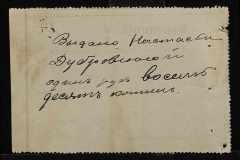 Выдано Настасьи
Дубровской
один руб восемь
десятъ копѣекъ.